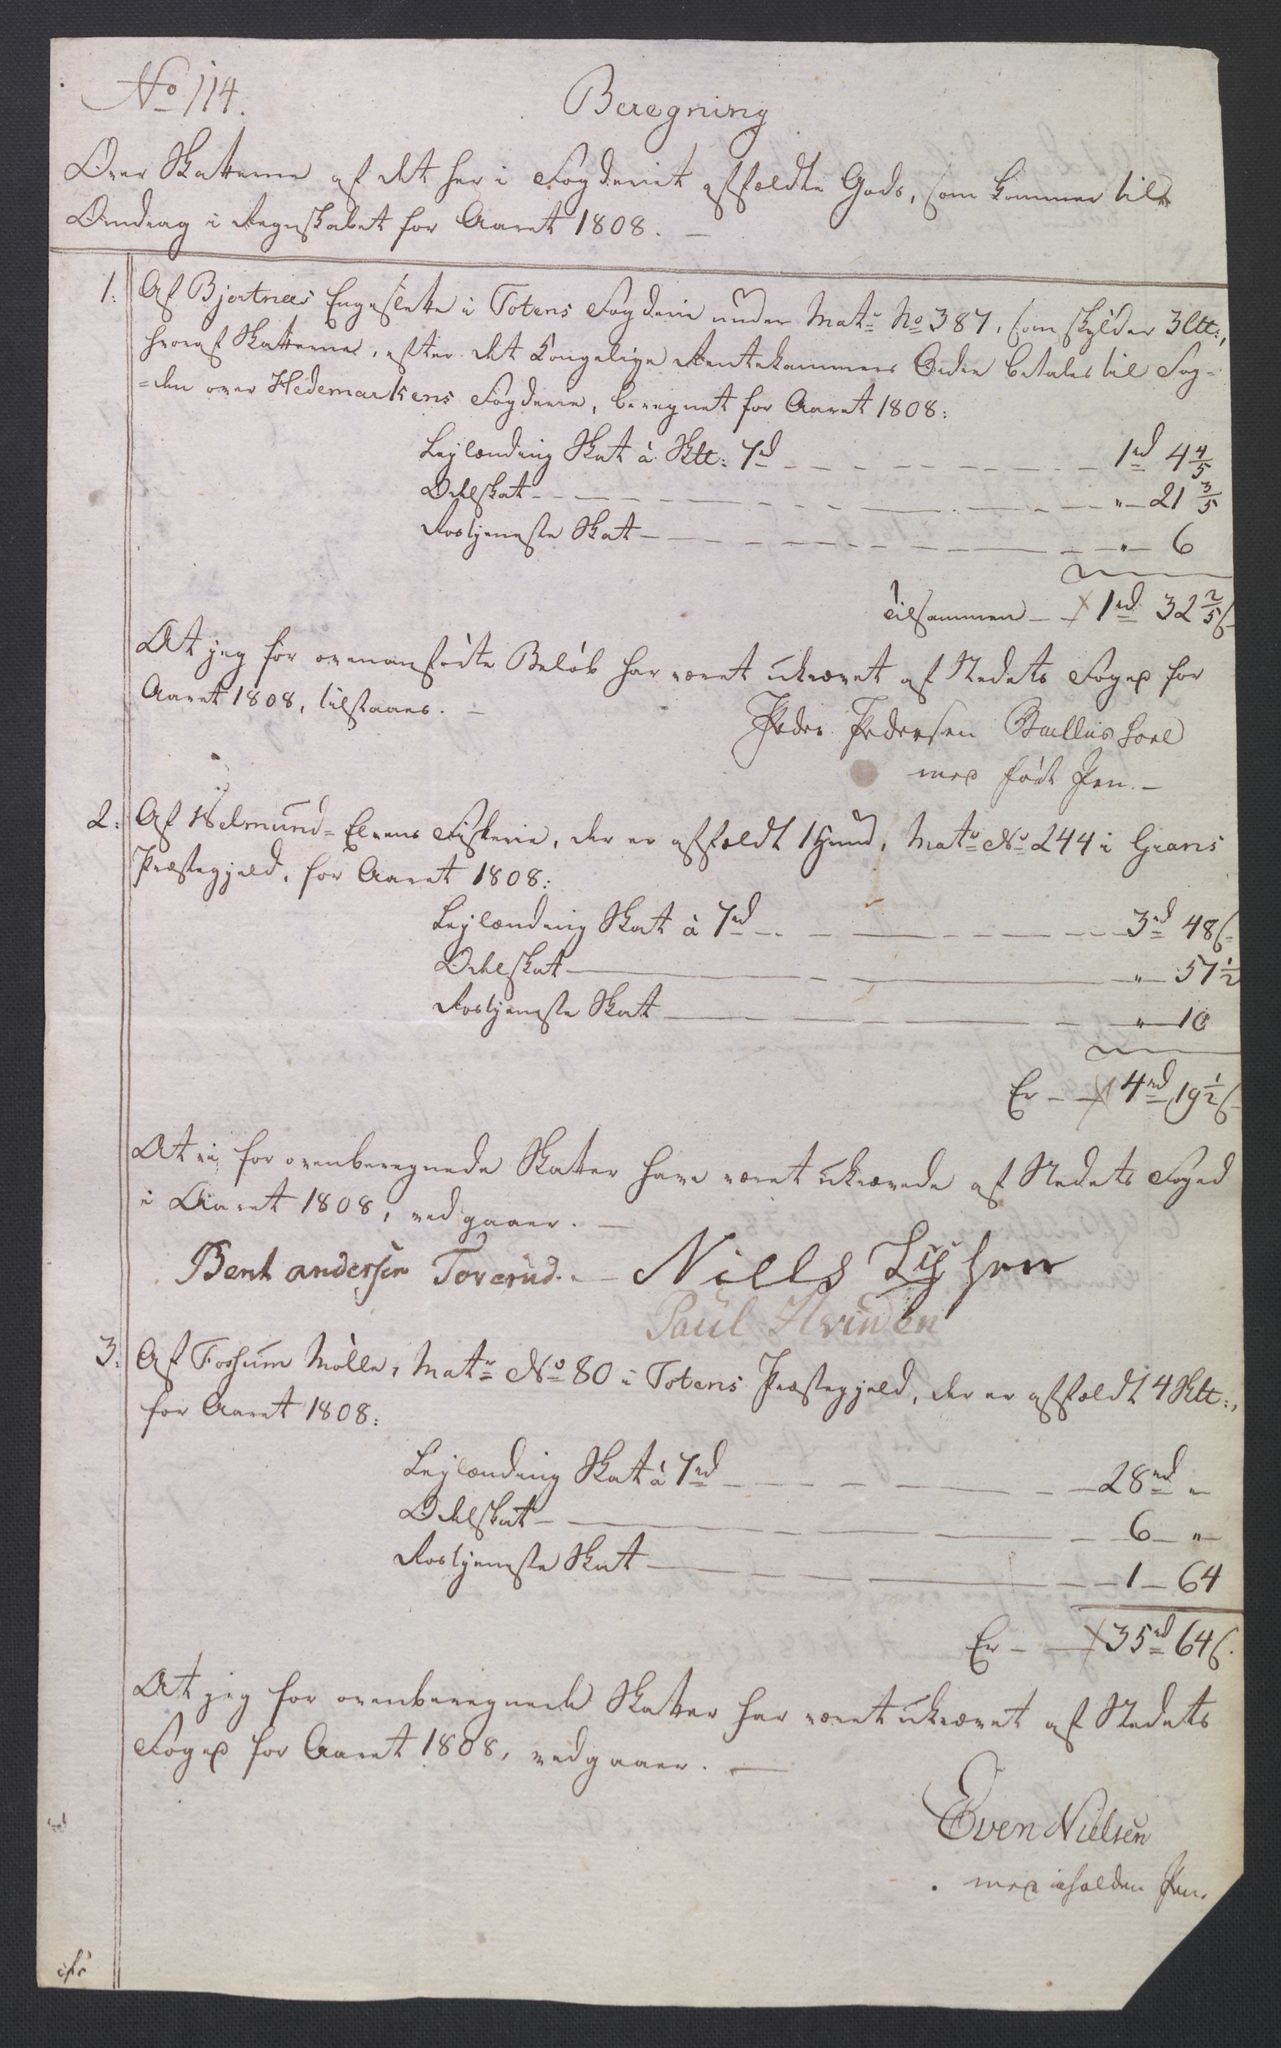 No 114.
Beregning
Over Skatterne af det her i Fogderiet affældte Gods, som kommer til
Omdrag i Regnskabet for Aaret 1808. —
1. Af Bjertnæs Engeslette i Totens Fogderie under Matr: No 387, som skylder 3 ltt:,
hvoraf Skatterne, efter det Kongelige Rentekammers Ordre betales til Fog-
=den over Hedemarkens Fogderie, beregnet for Aaret 1808:
Lejlænding Skat à Sktt: 7rd — 1rd 4 4/5
Odelskat — " — 21 3/5
Rostjeneste Skat — " — 6
Tilsammen — 1rd 32 2/5 s
At jeg for ovenanførte Beløb har været ukrævet af Stedets Foged for
Aaret 1808, tilstaaes. —
Peder Pedersen
med ført Pen. —
2. Af Elvens Fiskerie, der er affældt 1 Hund, Matr No 244 i Grans
Præstegjeld, for Aaret 1808:
Lejlænding Skat à 7rd — 3rd 48 s
Odelskat — " — 57 1/2
Rostjeneste Skat — " — 10
Er — 4rd 19 1/2 s
At vi for ovenberegnede Skatter have været ukrævede af Stedets Foged
i Aaret 1808, vedgaaer. —
Bent andersen Toverud. — Niells
Paul Hvinden
3. Af Fossum Mølle, Matr No 80 i Totens Præstegjeld, der er affældt 4 Sktt:,
for Aaret 1808:
Lejlænding Skat à 7rd — 28rd "
Odelskat — 6 — "
Rostjeneste Skat — 1 — 64
Er — 35rd 64 s.
At jeg for ovenberegnede Skatter har været ukrævet af Stedets
Foged for Aaret 1808, vedgaaer. —
Even Nielsen
med iholden Pen.